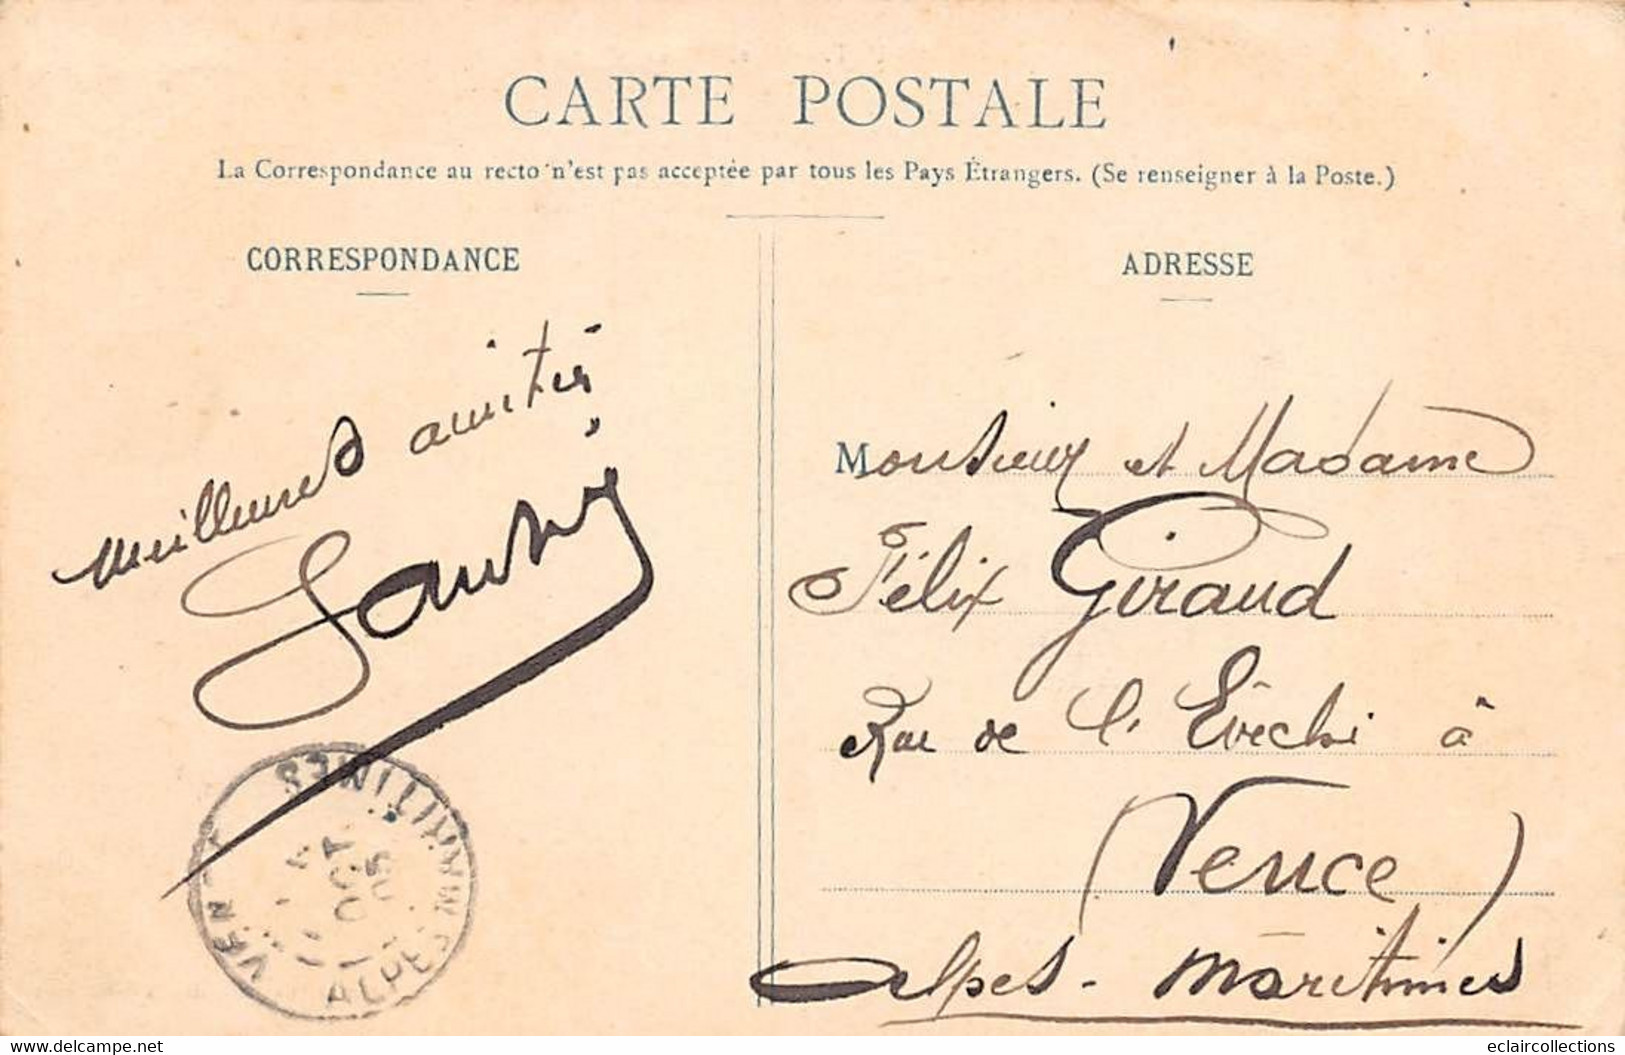 CARTE POSTALE
La Correspondance au recto n'est pas acceptée par tous les Pays Étrangers. (Se renseigner à la Poste.)
CORRESPONDANCE
meilleures amitiés
ADRESSE
Monsieur et Madame
Félix Giraud
Rue de l'Évêché à
(Vence)
Alpes-Maritimes
VENCE
OCT
05
ALPES MARITIMES
www.delcampe.net
eclaircollections